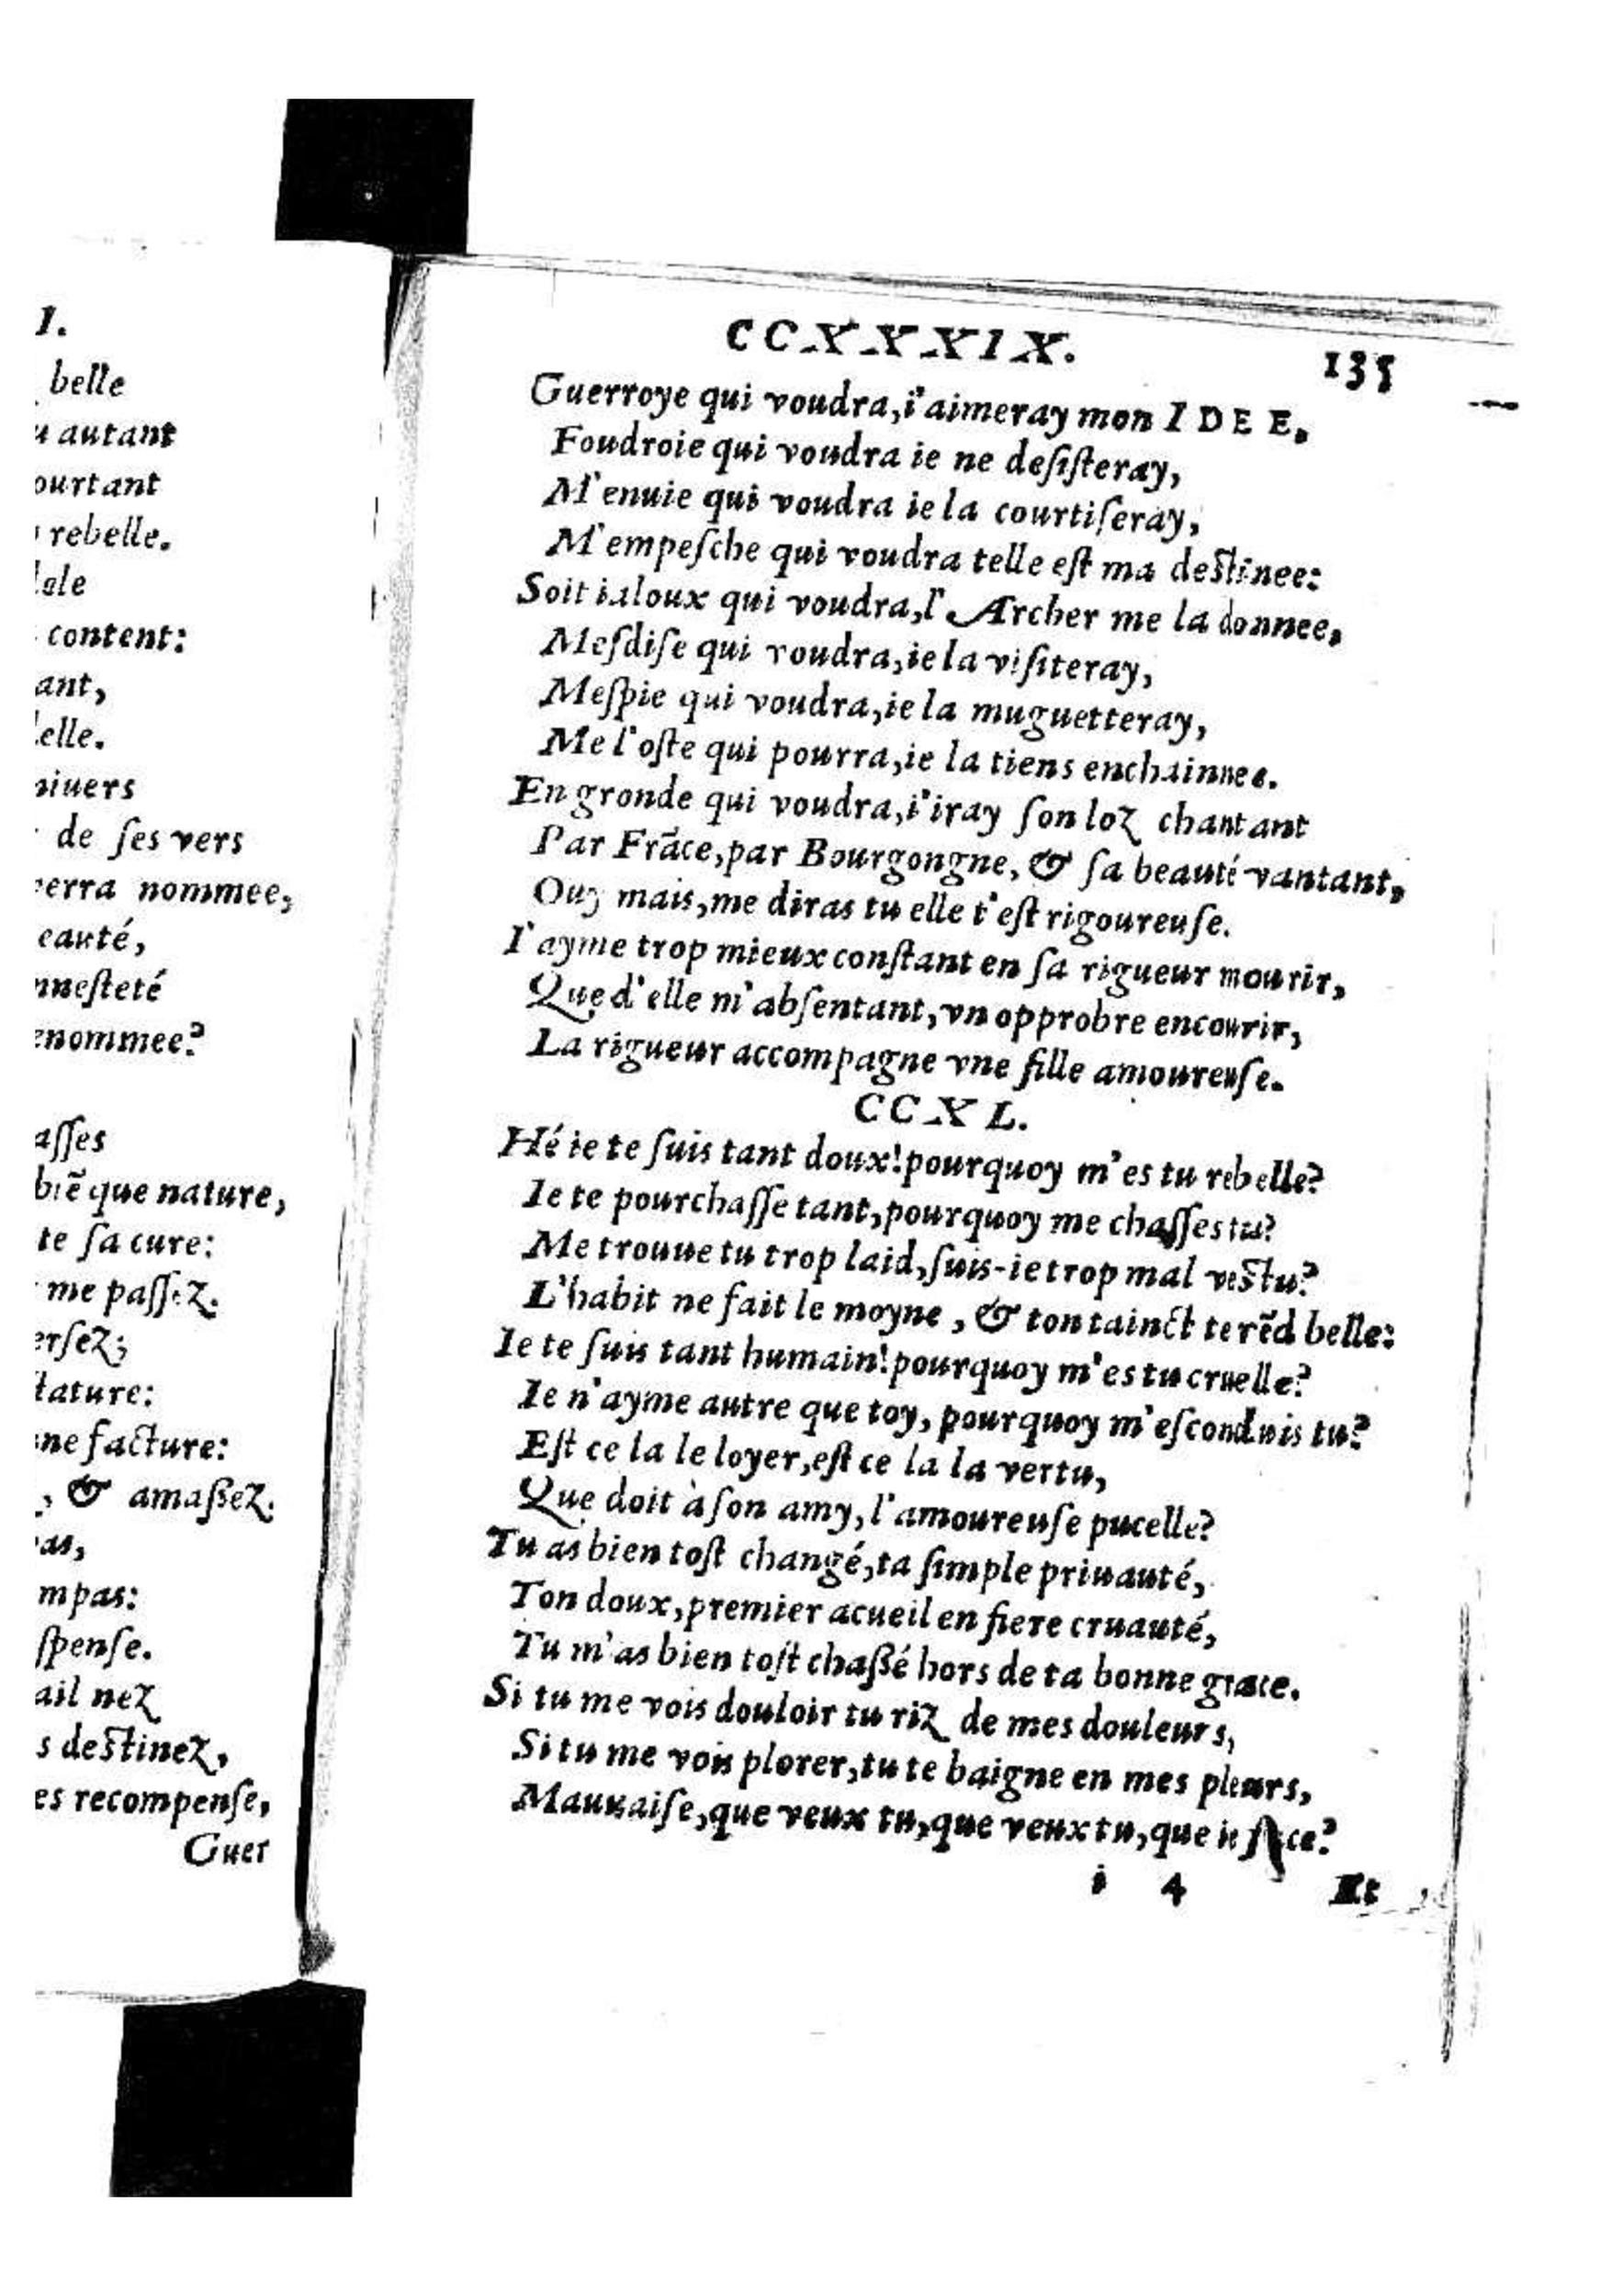 I.
belle
autant
ourtant
rebelle.
content:
ant,
elle.
niuers
de ſes vers
erra nommee,
eauté,
nneſteté
enommee?
aſſes
biẽ que nature,
te ſa cure:
me paſſez.
erſez;
ſtature:
ne facture:
, & amaßez.
as,
mpas:
ſpenſe.
ail nez
s deſtinez,
es recompenſe,
Guer
CCXXXIX.
135
Guerroye qui voudra, i'aimeray mon IDEE,
Foudroie qui voudra ie ne deſiſteray,
M'enuie qui voudra ie la courtiſeray,
M'empeſche qui voudra telle eſt ma deſtinee:
Soit ialoux qui voudra, l'Archer me la donnee,
Meſdiſe qui voudra, ie la viſiteray,
Meſpie qui voudra, ie la muguetteray,
Me l'oſte qui pourra, ie la tiens enchainnee.
En gronde qui voudra, i'iray ſon loz chantant
Par Frãce, par Bourgongne, & ſa beauté vantant,
Ouy mais, me diras tu elle t'eſt rigoureuſe.
I'ayme trop mieux conſtant en ſa rigueur mourir,
Que d'elle m'abſentant, vn opprobre encourir,
La rigueur accompagne vne fille amoureuſe.
CCXL.
Hé ie te ſuis tant doux! pourquoy m'es tu rebelle?
Ie te pourchaſſe tant, pourquoy me chaſſes tu?
Me trouue tu trop laid, ſuis-ie trop mal veſtu?
L'habit ne fait le moyne, & ton tainct te rẽd belle:
Ie te ſuis tant humain! pourquoy m'es tu cruelle?
Ie n'ayme autre que toy, pourquoy m'eſconduis tu?
Eſt ce la le loyer, eſt ce la la vertu,
Que doit à ſon amy, l'amoureuſe pucelle?
Tu as bien toſt changé, ta ſimple priuauté,
Ton doux, premier acueil en fiere cruauté,
Tu m'as bien toſt chaßé hors de ta bonne grace.
Si tu me vois douloir tu riz de mes douleurs,
Si tu me vois plorer, tu te baigne en mes pleurs,
Mauuaiſe, que veux tu, que veux tu, que ie face?
i 4
Et